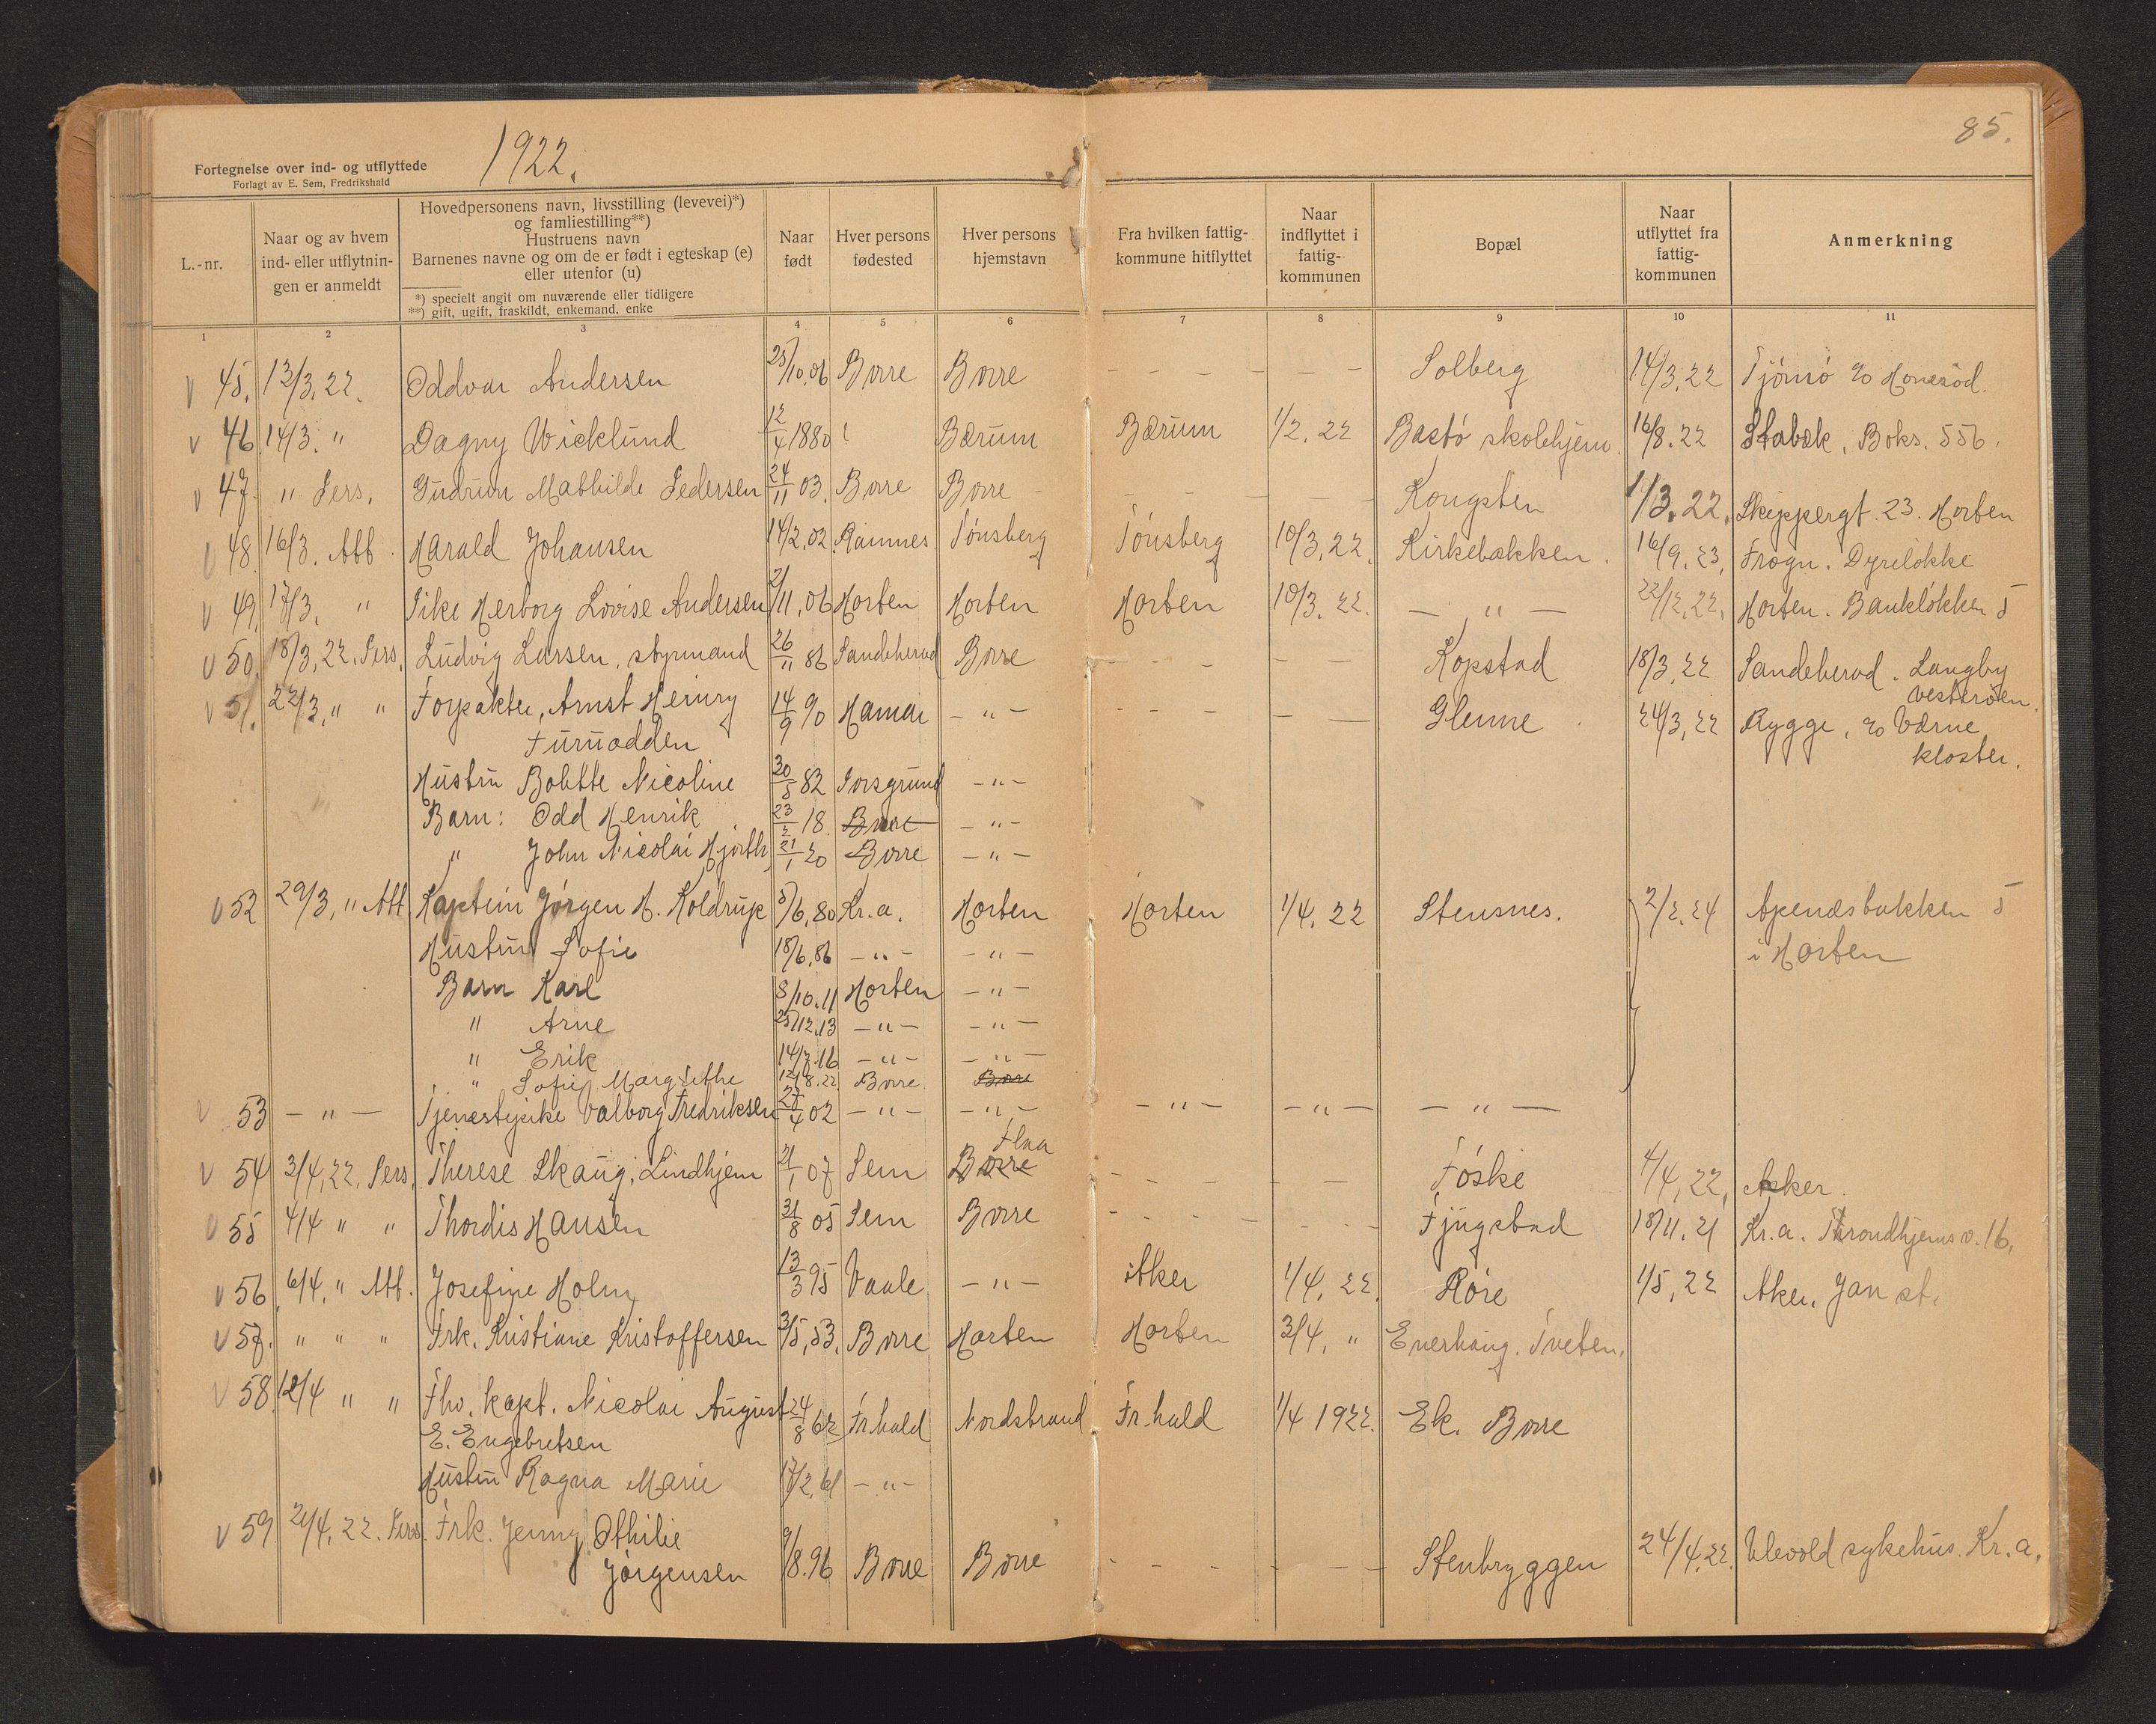 85.
1922.
Fortegnelse over ind- og utflyttede
Forlagt av E. Sem, Fredrikshald
L.-nr.
Naar og av hvem
ind- eller utflytnin-
gen er anmeldt
Hovedpersonens navn, livsstilling (levevei)*)
og famliestilling**)
Hustruens navn
Barnenes navne og om de er født i egteskap (e)
eller utenfor (u)
*) specielt angit om nuværende eller tidligere
**) gift, ugift, fraskildt, enkemand, enke
Naar
født
Hver persons
fødested
Hver persons
hjemstavn
Fra hvilken fattig-
kommune hitflyttet
Naar
indflyttet i
fattig-
kommunen
Bopæl
Naar
utflyttet fra
fattig-
kommunen
Anmerkning
1 2 3 4 5 6 7 8 9 10 11
V 45. 13/3.22. Oddvar Andersen 25/10.06 Borre Borre - - - - - - Solberg 14/3.22 Tjömö
V 46. 14/3. " Dagny Wicklund 12/4 1880 ! Bærum Bærum 1/2.22 Bastö skolehjem. 16/8.22 Stabæk, Boks. 556.
V 47. " Pers. Gudrun Mathilde Pedersen 24/11 03. Borre Borre - - - - - - Kongsten 1/3.22. Skippergt. 23. Horten
V 48. 16/3. Att. Harald Johansen 14/2.02. Ramnes Tönsberg Tönsberg 10/3.22. Kirkebakken. 16/9.23, Frogn. Dyrelökke
V 49. 17/3. " Pike Herborg Lovise Andersen 2/11.06 Horten Horten Horten 10/3.22. - " - 22/12.22. Horten. Banklökken 5
V 50. 18/3.22. Pers. Ludvig Larsen, styrmand 26/11 86 Sandeherad Borre - - - - - Kopstad 18/3.22 Sandeherad. Langby
Vesteröen.
V 51. 22/3, " " Forpakter, Arnst Heinry 14/9 90 Hamar - " - - - - - - Glenne 24/3,22 Rygge, c/o Værne
Furuodden kloster.
Hustru Bolette Nicoline 30/5 82 Porsgrund - " -
Barn: Odd Henrik 23/2 18. Borre - " -
" John Nicolai Hjorth 21/1 20 Borre - " -
V 52 29/3, " Att Kaptein Jörgen H. Koldrup 5/6.80 Kr.a. Horten Horten 1/4.22 Stensnes. 2/2.24 Apenæsbakken 5
Hustru Sofie 18/6.86 - " - - " - i Horten
Barn Karl 8/10.11 Horten - " -
" Arne 25/12.13 - " - - " -
" Erik 14/7.16 - " - - " -
" Sofie Margrethe 12/8.22 Borre Borre
V 53 - " - Tjenestepike Valborg Fredriksen 27/4 02 - " - - " - - " - - " - - " -
Flaa
V 54 3/4,22. Pers. Therese Skaug, Lindhjem 2/1 07 Sem Borre - - - - - Föske 4/4,22, Asker.
V 55 4/4 " " Thordis Hansen 31/8 05 Sem Borre - - - - - - Fjugstad 18/11.21 Kr.a. Trondhjems v. 16.
V 56 6/4, " Att. Josefine Holm 13/3 95 Vaale - " - Aker 1/4.22. Röre 1/5,22 Aker. Jan st.
V 57. " " " Frk. Kristiane Kristoffersen 3/5,53. Borre Horten Horten 3/4, " Enerhaug. Tveten.
V 58. 12/4 " " Fhv. kapt. Nicolai August 24/8 62 Fr.hald Nordstrand Fr.hald 1/4 1922. Ek. Borre
E. Engebretsen
Hustru Ragna Marie 17/2.61 - " -
V 59 21/4.22. Pers. Frk. Jenny Othilie
Jörgensen 9/8.96 Borre Borre - - - - - Stenbryggen 24/4.22. Ulevold sykehus. Kr.a.